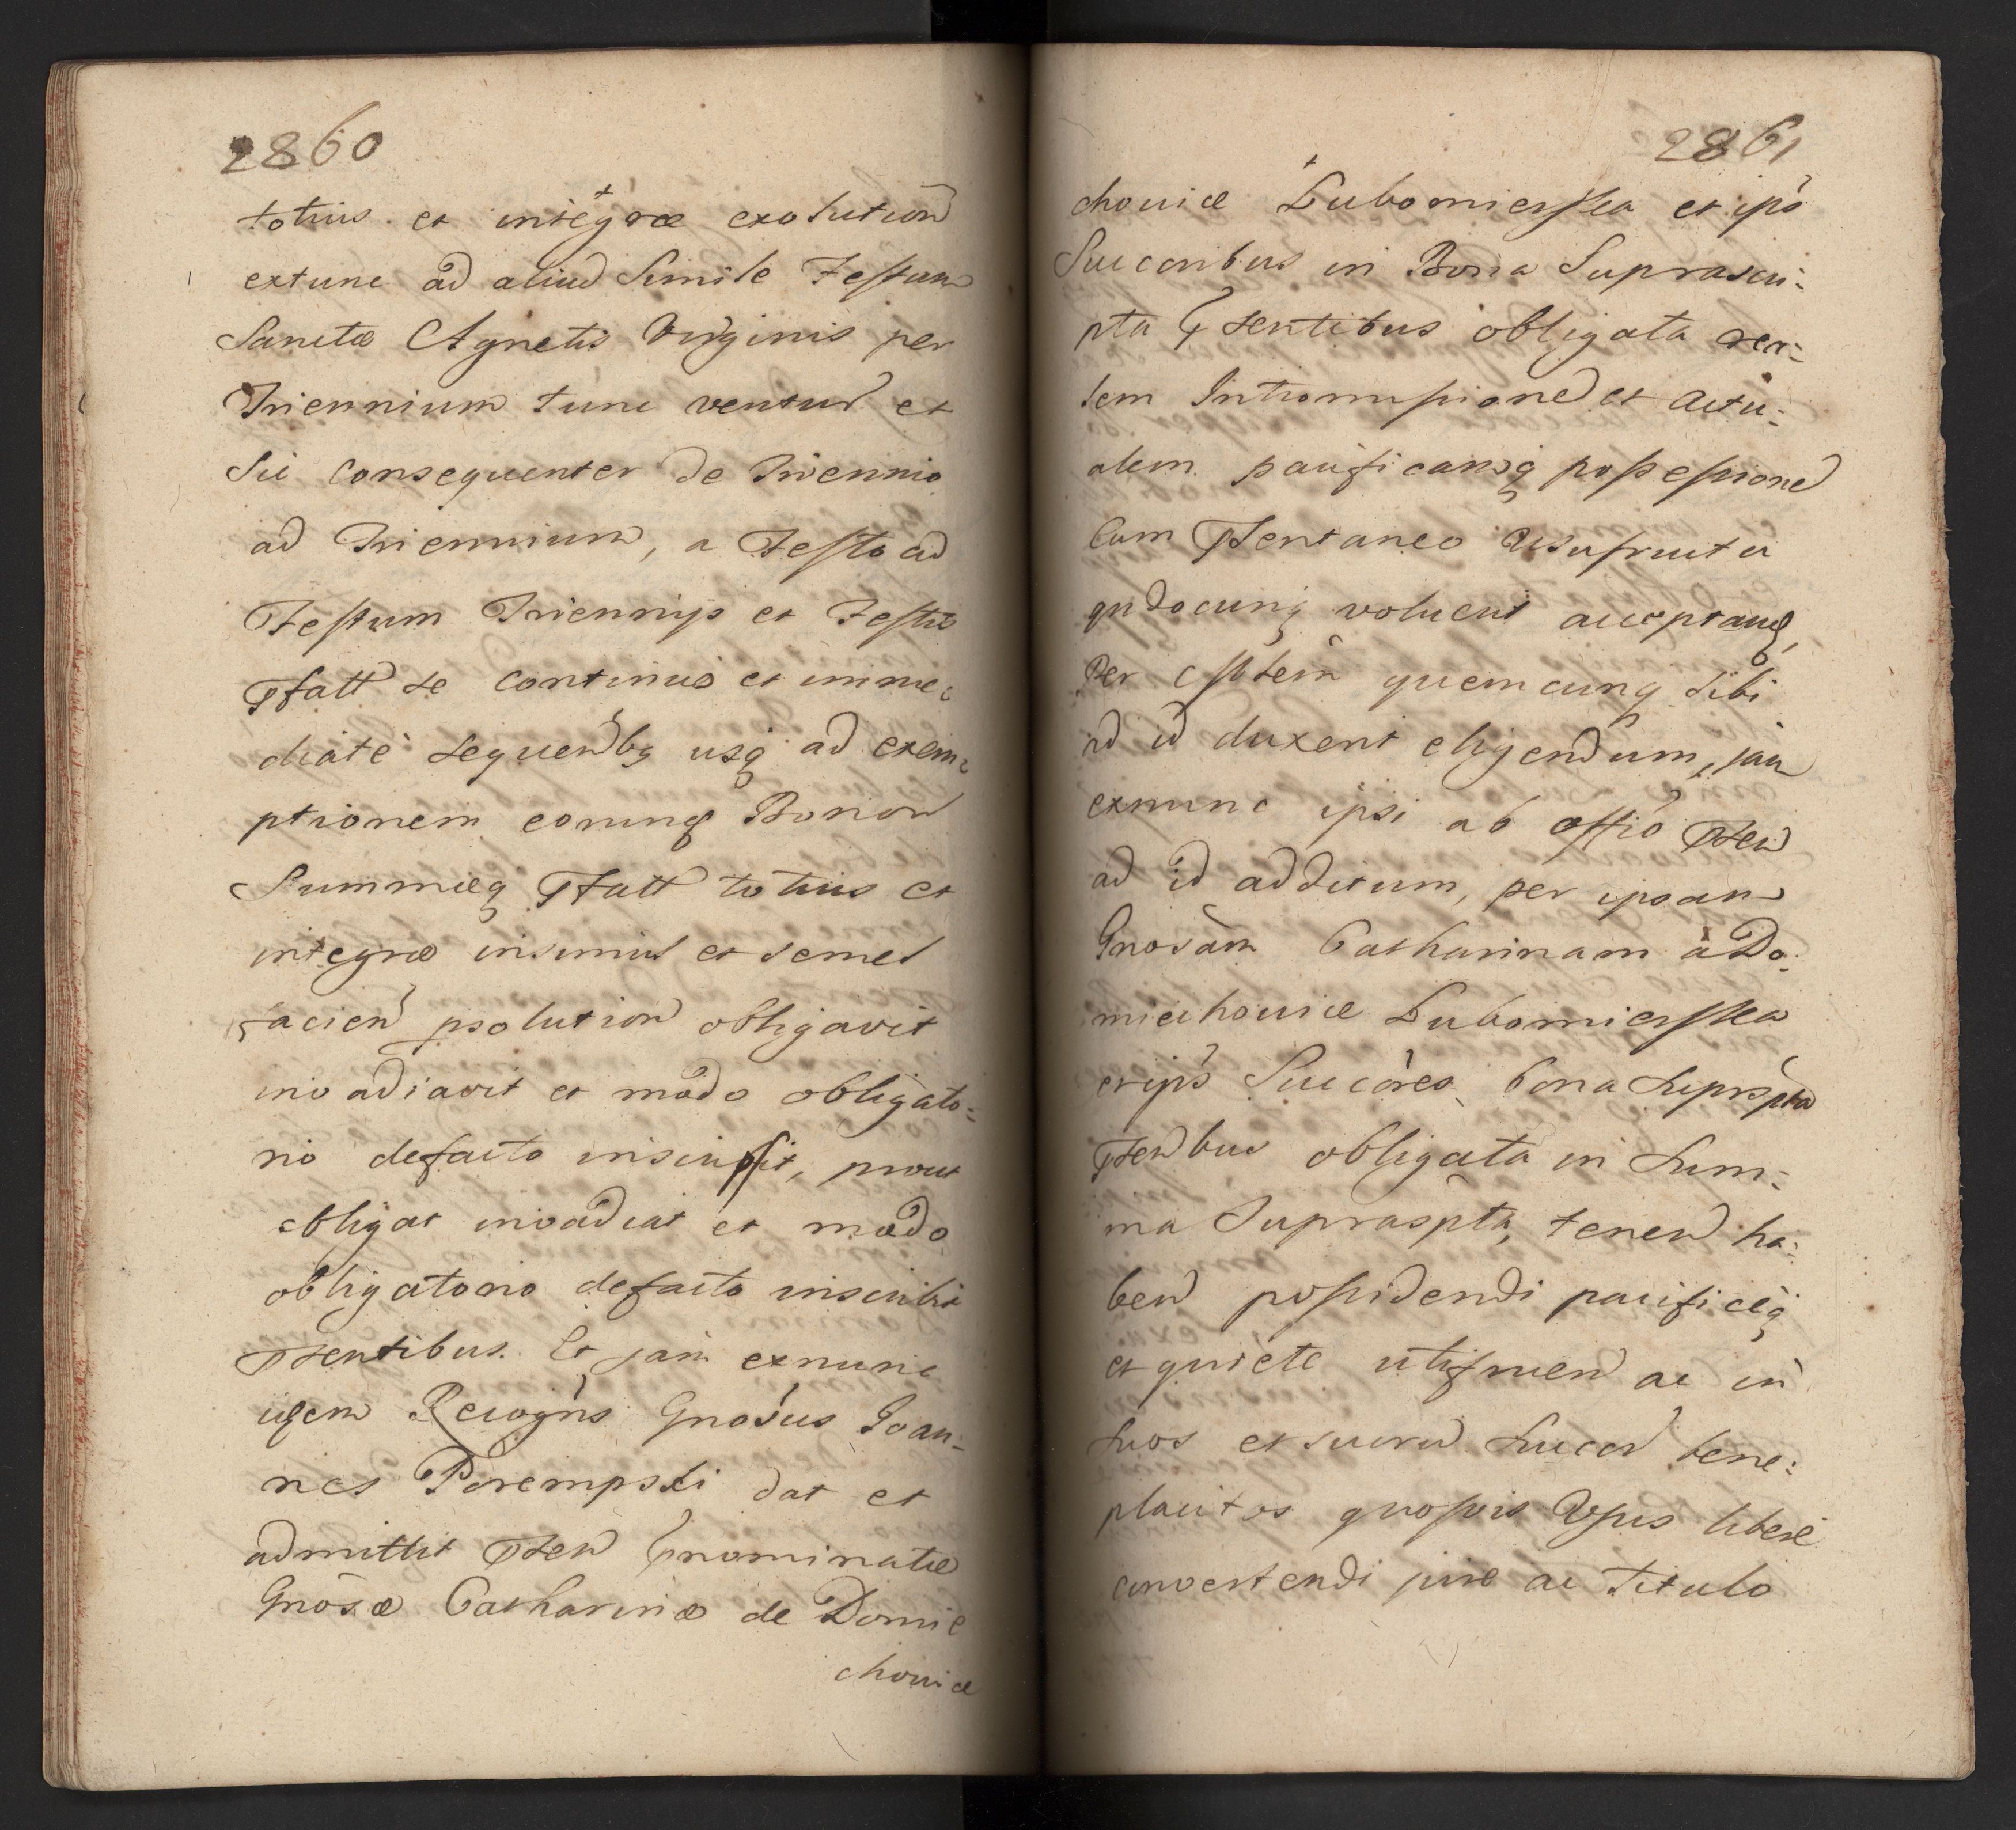 2860
totius et integræ exolution
extunc ad aliud Simile Festum
Sanctæ Agnetis Virginis per
Triennium tunc ventur et
Sic consequenter de Triennio
ad Triennium, a Festo ad
Festum Triennijs et Festis
Pfatt se continuo et imme:
diatè sequendbq usq ad exem:
ptionem eorunq Bonor
Summæq Pfatt totius et
integræ insimul et semel
facien psolution obligavit
invadiavit et modo obligato:
rio defacto inscripsit, prout
obligat invadiat et modo
obligatorio defacto inscribit
Psentibus. Et jam exnunc
idem Recogns Gnosus Joan:
nes Porempski dat et
admittit Psen Pnominatæ
Gnosæ Catharinæ de Domie
chouicæ
2861
chouicæ Lubomierska et ips
Succoribus in Bona Suprascri:
pta Psentibus obligata rea:
lem Intromissione et actu:
alem pacificamq possessione
Cum Psentaneo Usufructu
qndocunq voluerit acceptanq
Per quemcunq sibi
ad id duxerit eligendum, jam
exnunc ipsi ab offio Psen
ad id additum, per ipsam
Gnosam Catharinam à Do:
miechouicæ Lubomierska
et ips Succores bona suprspta
Psenbus obligata in Sum:
ma Supraspta, tenen ha:
ben possidendi pacificeq
et quiete utifruen ac in
suos et suoru Succor bene:
placitos quosvis Usus liberè
convertendi jure ac Titulo